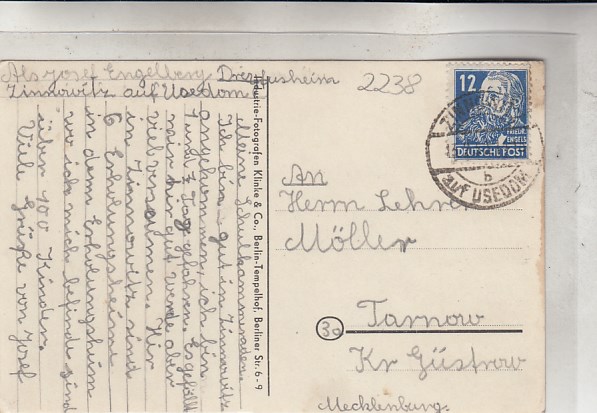 Abs Josef Engelberg
Zinnowitz auf Usedom
2238
12
FRIEDR.
ENGELS
DEUTSCHE POST
b
auf USEDOM
Meine Schulkammeraden.
Ich bin gut in Zinnowitz
angekommen, ich bin
1 und 1 Tag gefahren. Es gefällt
mir hir gut werde aber
viel versäumen. Hir
in Zinnowitz sind
6 Erholungsheime
in dem Erholungsheim
wo ich mich befinde sind
über 100 Kinder.
Viele Grüße von Josef
Industrie-Fotografen Klinke & Co., Berlin-Tempelhof, Berliner Str. 6-9
An
Herrn Lehrer
Möller
3a
Tarnow
Kr Güstrow
Mecklenburg.